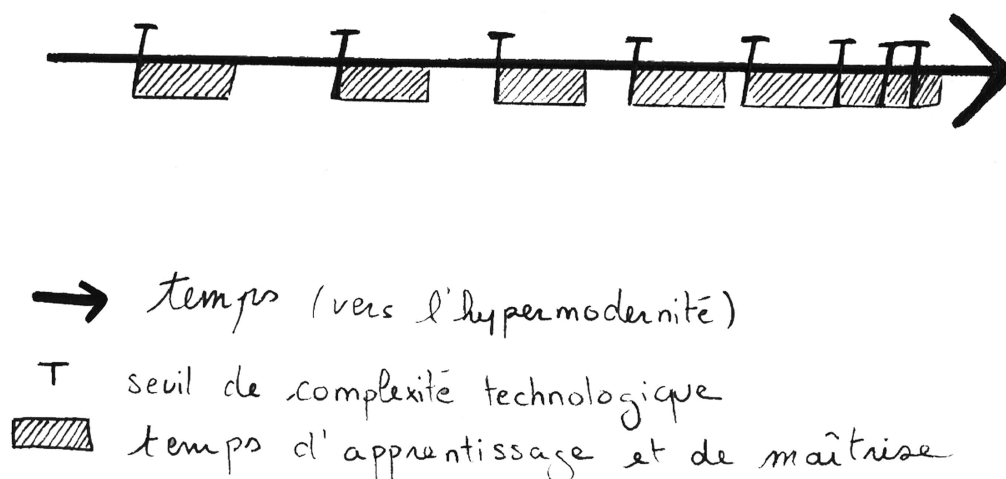 temps (vers l'hypermodernité)
T seuil de complexité technologique
temps d'apprentissage et de maîtrise